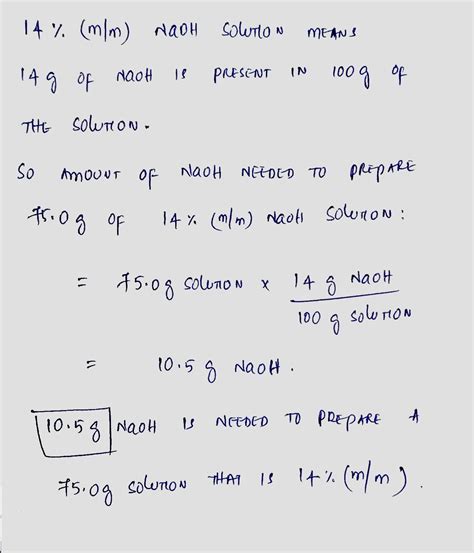 14 % (m/m) NaOH SOLUTION MEANS
14 g OF NaOH IS PRESENT IN 100 g OF
THE SOLUTION.
SO AMOUNT OF NaOH NEEDED TO PREPARE
75.0 g OF 14 % (m/m) NaOH SOLUTION :
= 75.0 g SOLUTION x 14 g NaOH
100 g SOLUTION
= 10.5 g NaOH.
10.5 g NaOH IS NEEDED TO PREPARE A
75.0 g SOLUTION THAT IS 14 % (m/m).